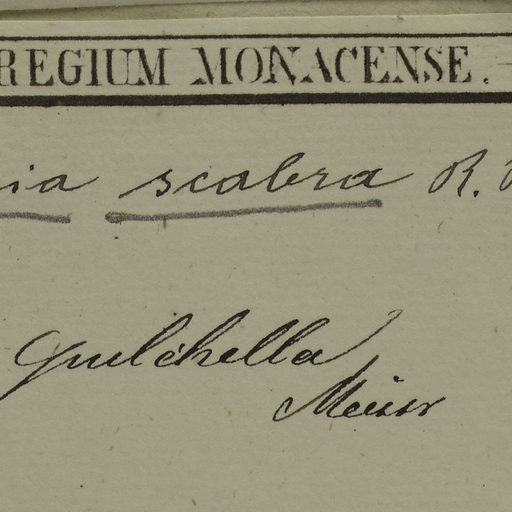 REGIUM MONACENSE.
ia scabra R.
pulchella
Meisn